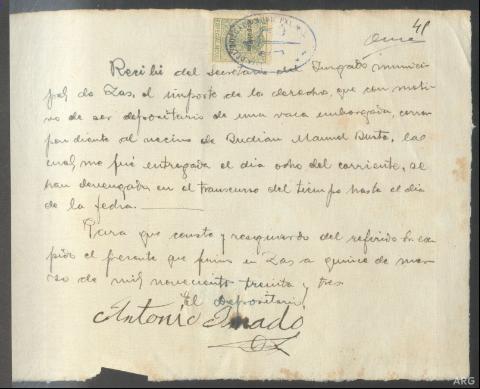 41
Once
Recibi del secretario del Juzgado munici-
pal de Zas, el importe de la derechos, que con moti-
vo de ser depositario de una vaca embargada, corres-
pondiente al vecino de Budian Manuel
cual, me fué entregada el dia ocho del corriente, se
han devengado en el transcurso del tiempo hasta el dia
de la fecha.
Para que conste y resguardo del referido Sr. ex-
pido el presente que firmo en Zas a quince de mar-
zo de mil novecientos treinta y tres
El Depositario
Antonio Amado
ARG